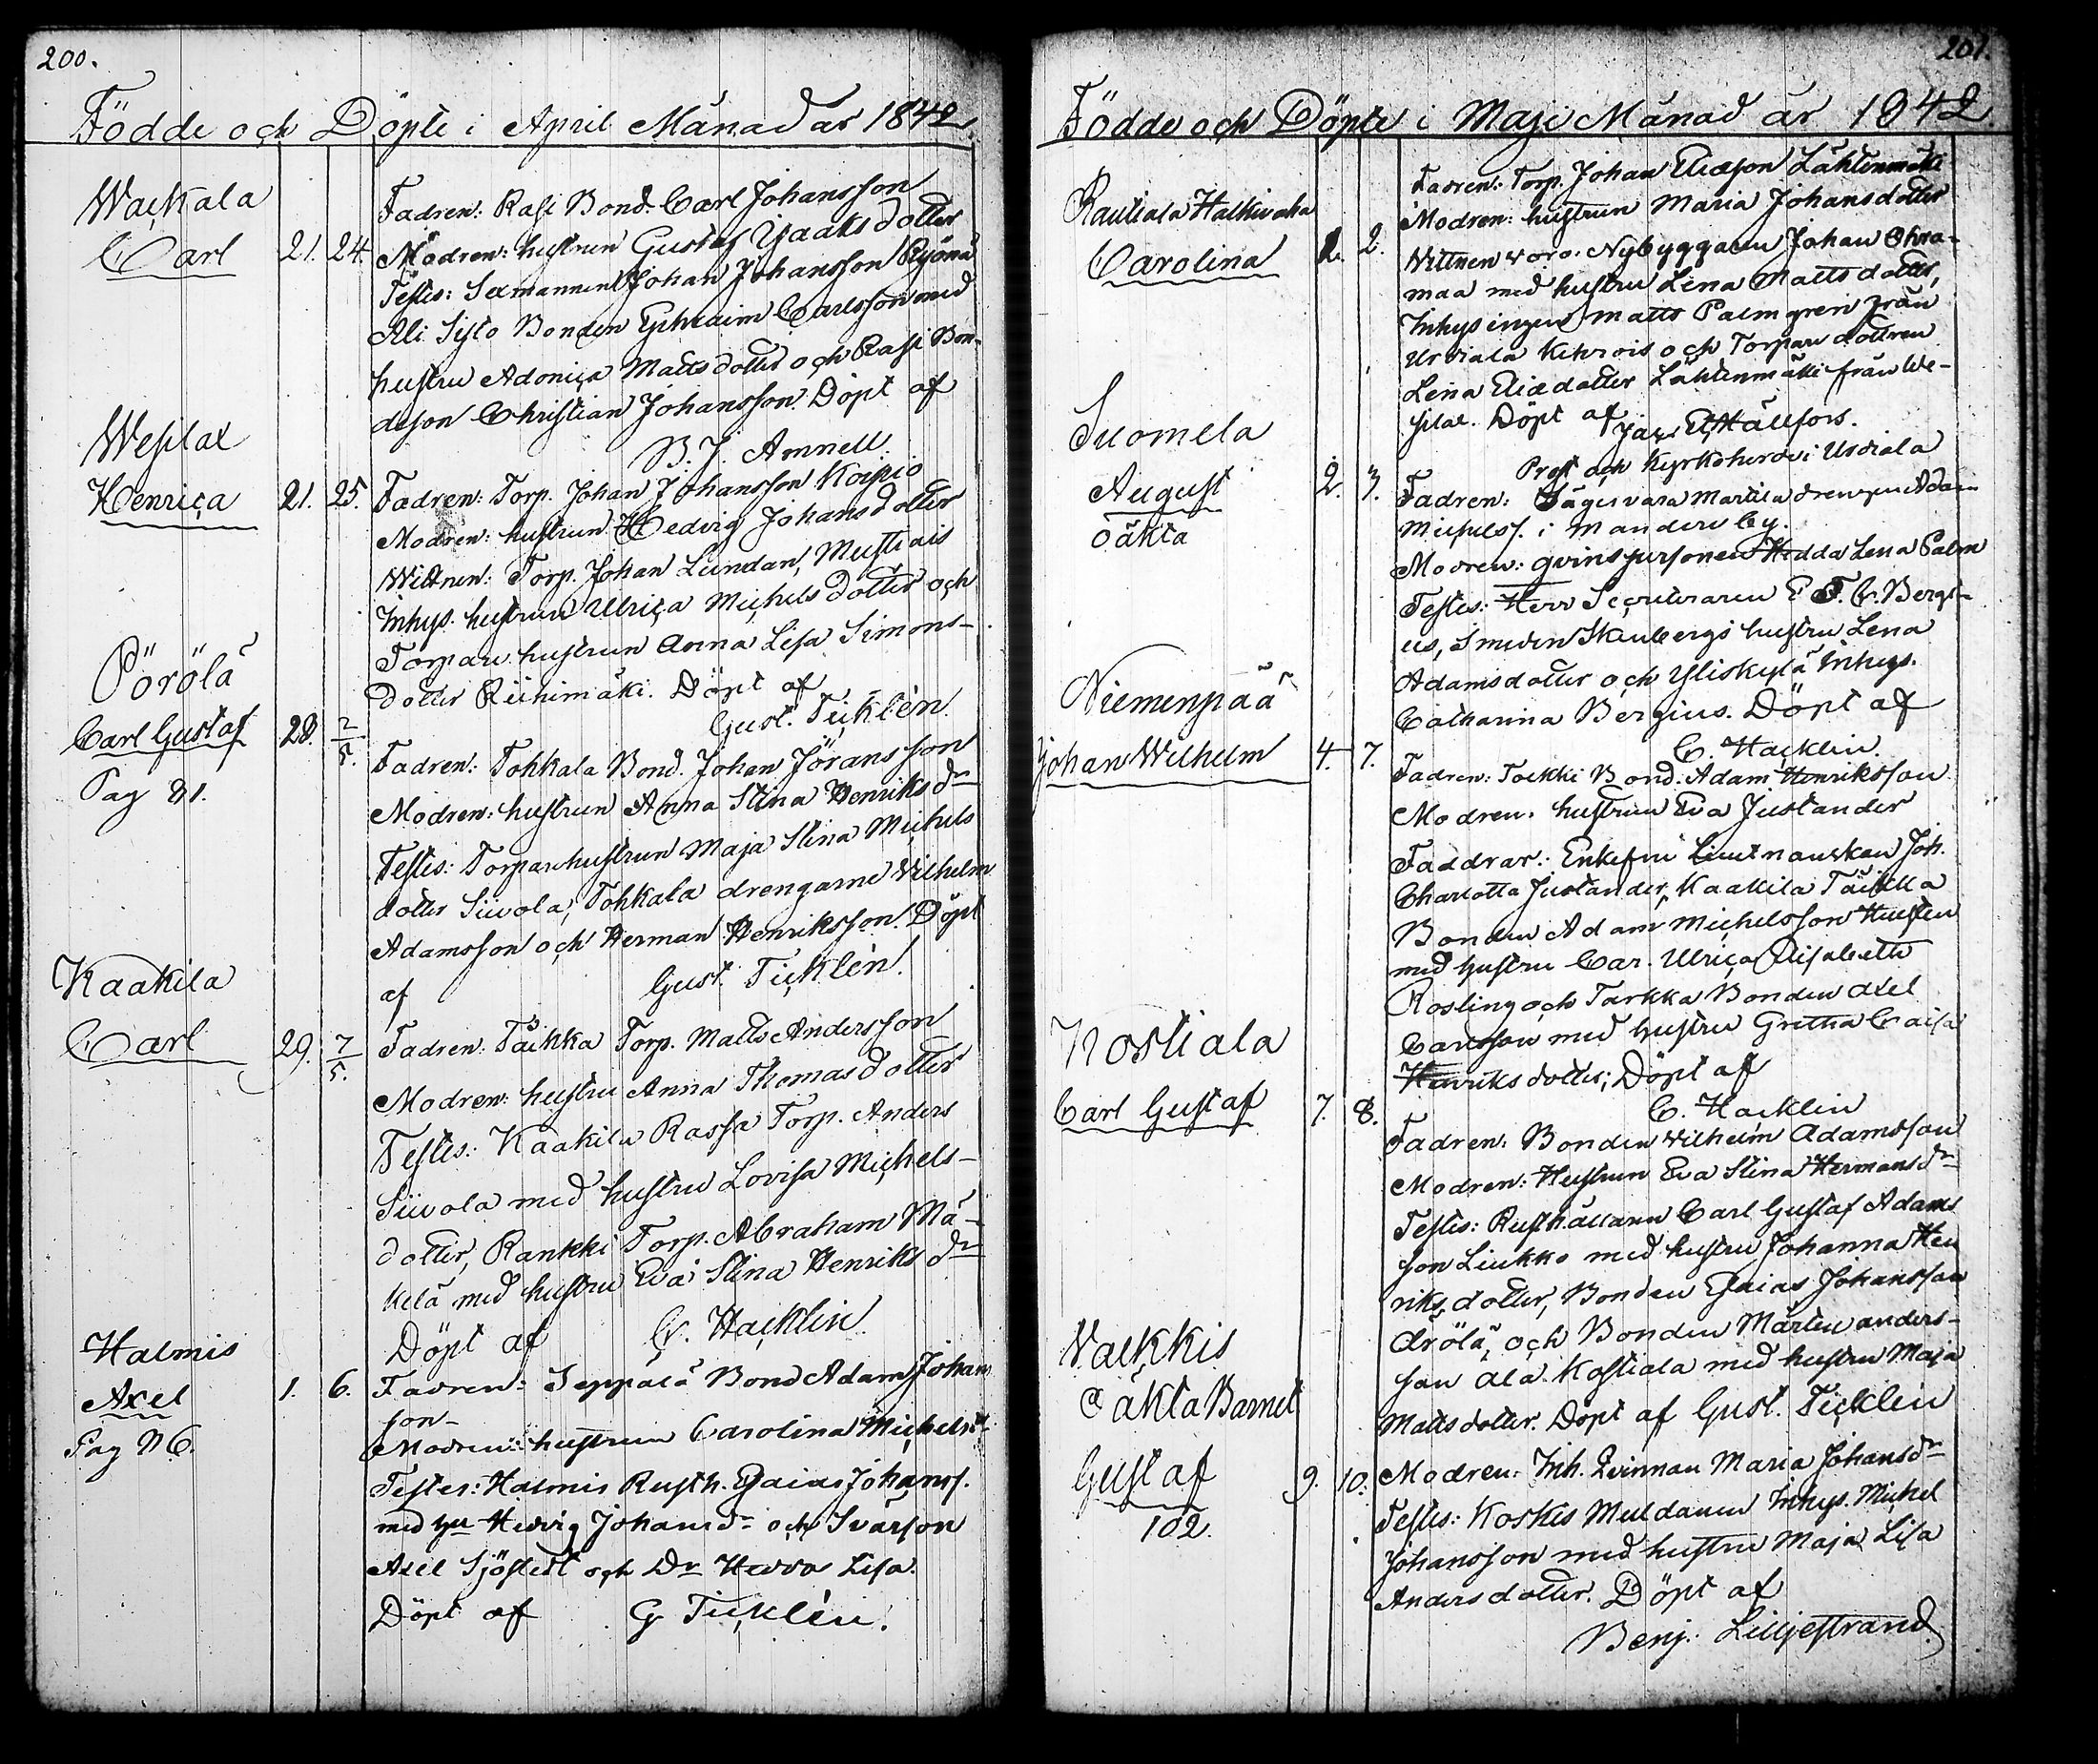 200.
Födde och Döpte i April Månad år 1842.
Wackala
Carl 21. 24.
Fadren: Rasi Bond. Carl Johansson
Modren: hustrun Gustaf Jsaaks dotter
Testis: Sexmannen Johan Johansson
Ali Sisto Bonden Ephraim Carlsson med
hustru Adonica Matts dotter och Rasi Bon-
deson Christian Johansson. Döpt af
B. J. Amnell.
Wesilax
Henrica 21. 25.
Fadren: Torp. Johan Johansson Koipio
Modren: hustrun Hedvig Johans dotter
Wittnen: Torp. Johan Lundan, Mustiais
Inhys. hustrun Ulrica Michels dotter och
Torpare hustrun Anna Lisa Simons-
dotter Riihimäki. Döpt af
Gust. Ticklén.
Pörölä
Carl Gustaf 28. 2/5.
Pag 81.
Fadren: Tohkala Bond. Johan Jöransson
Modren: hustrun Anna Stina Henriks dr
Testis: Torpare hustrun Maja Stina Michels
dotter Siivola, Tohkala drengarne Wilhelm
Adamsson och Herman Henriksson. Döpt
af Gust. Ticklén.
Kaakila
Carl 29. 7/5.
Fadren: Täikkä Torp. Matts Andersson
Modren: hustru Anna Thomas dotter
Testis: Kaakila Rassa Torp. Anders
Siivola med hustru Lovisa Michels-
dotter, Rankki Torp. Abraham Mä-
kelä med hustru Eva Stina Henriks dr
Döpt af C. Hacklin
Halmis
Axel 1. 6.
Pag 86.
Fadren: Seppälä Bond Adam Johans
son-
Modren: hustrun Carolina Michelsd.
Testes: Halmis Rusth. Esaias Johanss.
med hu Hedvig Johansdr och Svärson
Axel Sjöstedt och Dr Hedda Lisa.
Döpt af G Ticklén.
201.
Födde och Döpte i Maji Månad år 1842.
Rautiala Halkivaha
Carolina 2. 2.
Fadren: Torp. Johan Eliasson Lähtenmäki
Modren: hustrun Maria Johansdotter
Wittnen voro: Nybyggaren Johan Ohra-
maa med hustru Lena Mattsdotter,
Inhysingen Matts Palmgren från
Urdiala Kehrois och Torpare dottren
Lena Eliædotter Lähtenmäki från We-
silax. Döpt af
Jac. Ed. Hällfors.
Prost och Kyrkoherde i Urdiala
Suomela
August 2. 3.
oäkta
Fadren: Säges vara Martila drengen Adam
Michelss. i Mandere by.
Modren: qvinspersonen Hedda Lena Palm
Testis: Herr Secreteraren E. F. C. Bergi-
us, Smeden Stenbergs hustru Lena
Adamsdotter och Yliskylä Inhys.
Catharina Bergius. Döpt af
C. Hacklin.
Niemenpää
Johan Wilhelm 4. 7.
Fadren: Torkki Bond. Adam Henriksson
Modren: hustrun Eva Justander
Faddrar: Enkefru Lieutnantskan Joh.
Charlotta Justander, Kaakila Täikkä
Bonden Adam Michelsson
med hustru Car. Ulrica Elisabeth
Rosling och Tarkka Bonden Axel
Carlsson med hustru Gretha Caisa
Henriksdotter; Döpt af
C. Hacklin
Kostiala
Carl Gustaf 7. 8.
Fadren: Bonden Wilhelm Adamsson
Modren: Hustrun Eva Stina Hermansdr
Testis: Rusthållaren Carl Gustaf Adams
son Liukko med hustru Johanna Hen
riks dotter, Bonden Esaias Johansson
Arölä, och Bonden Mårten Anders-
son Ala Kostiala med hustru Maja
Mattsdotter. Döpt af Gust. Ticklén
Walkkis
Oäkta Barnet
Gustaf 9. 10.
102.
Modren: Inh. Qvinnan Maria Johansdr
Testis: Koskis Muldaren Inhys. Michel
Johansson med hustru Maja Lisa
Anders dotter. Döpt af
Benj. Liljestrand